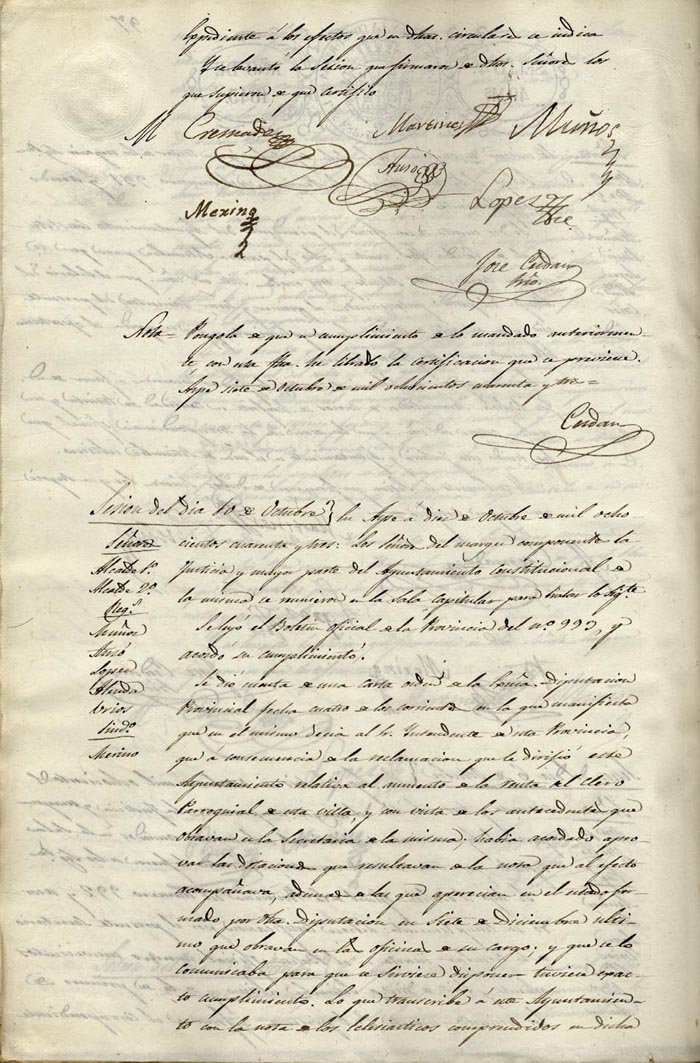 Expediente á los efectos que en dha. circular se indica
Y se levantó la Sesion que firmaron de dhos. Señores los
que supieron de que certifico
M Cremades Martinez Muños
Ausó
Lopez
Merino
Jose Cerdan
Srio.
Nota = Pongola de que en cumplimiento de lo mandado anteriormen-
te con esta fha. he librado la certificacion que se previene.
Aspe siete de Octubre de mil ochocientos cuarenta y tres =
Cerdan
Sesion del dia 10 de Octubre
En Aspe á diez de Octubre de mil ocho-
Señores
cientos cuarenta y tres: Los Señores del margen componente la
Alcalde 1.º
Justicia y mayor parte del Ayuntamiento Constitucional de
Alcalde 2.º
la misma se reunieron en la Sala Capitular para tratar lo sigte.
Reg.s
Se leyó el Boletin oficial de la Provincia del n.º 993, y
Muños
acordó su cumplimiento.
Ausó
Lopez
Se dió cuenta de una carta orden de la Exma. Diputacion
Provincial fecha cuatro de los corrientes en la que manifiesta
que en el mismo decia al Sr. Yntendente de esta Provincia,
Sind.o
Merino
que á consecuencia de la reclamacion que le dirifió este
Ayuntamiento relativa al aumento de la renta al Clero
Parroquial de esta villa, y con vista de los antecedentes que
obravan en la Secretaria de la misma, habia acordado apro-
var las dotaciones que resultavan de la nota que al efecto
acompañava, ademas de las que aparecian en el estado for-
mado por dha. Diputacion en Siete de Diciembre ulti-
mo que obravan en las oficinas de su cargo; y que se lo
comunicaba para que se sirviese disponer tuviese exac-
to cumplimiento. Lo que transcribe á este Ayuntamien-
to con la nota de los Eclesiasticos comprendidos en dicha